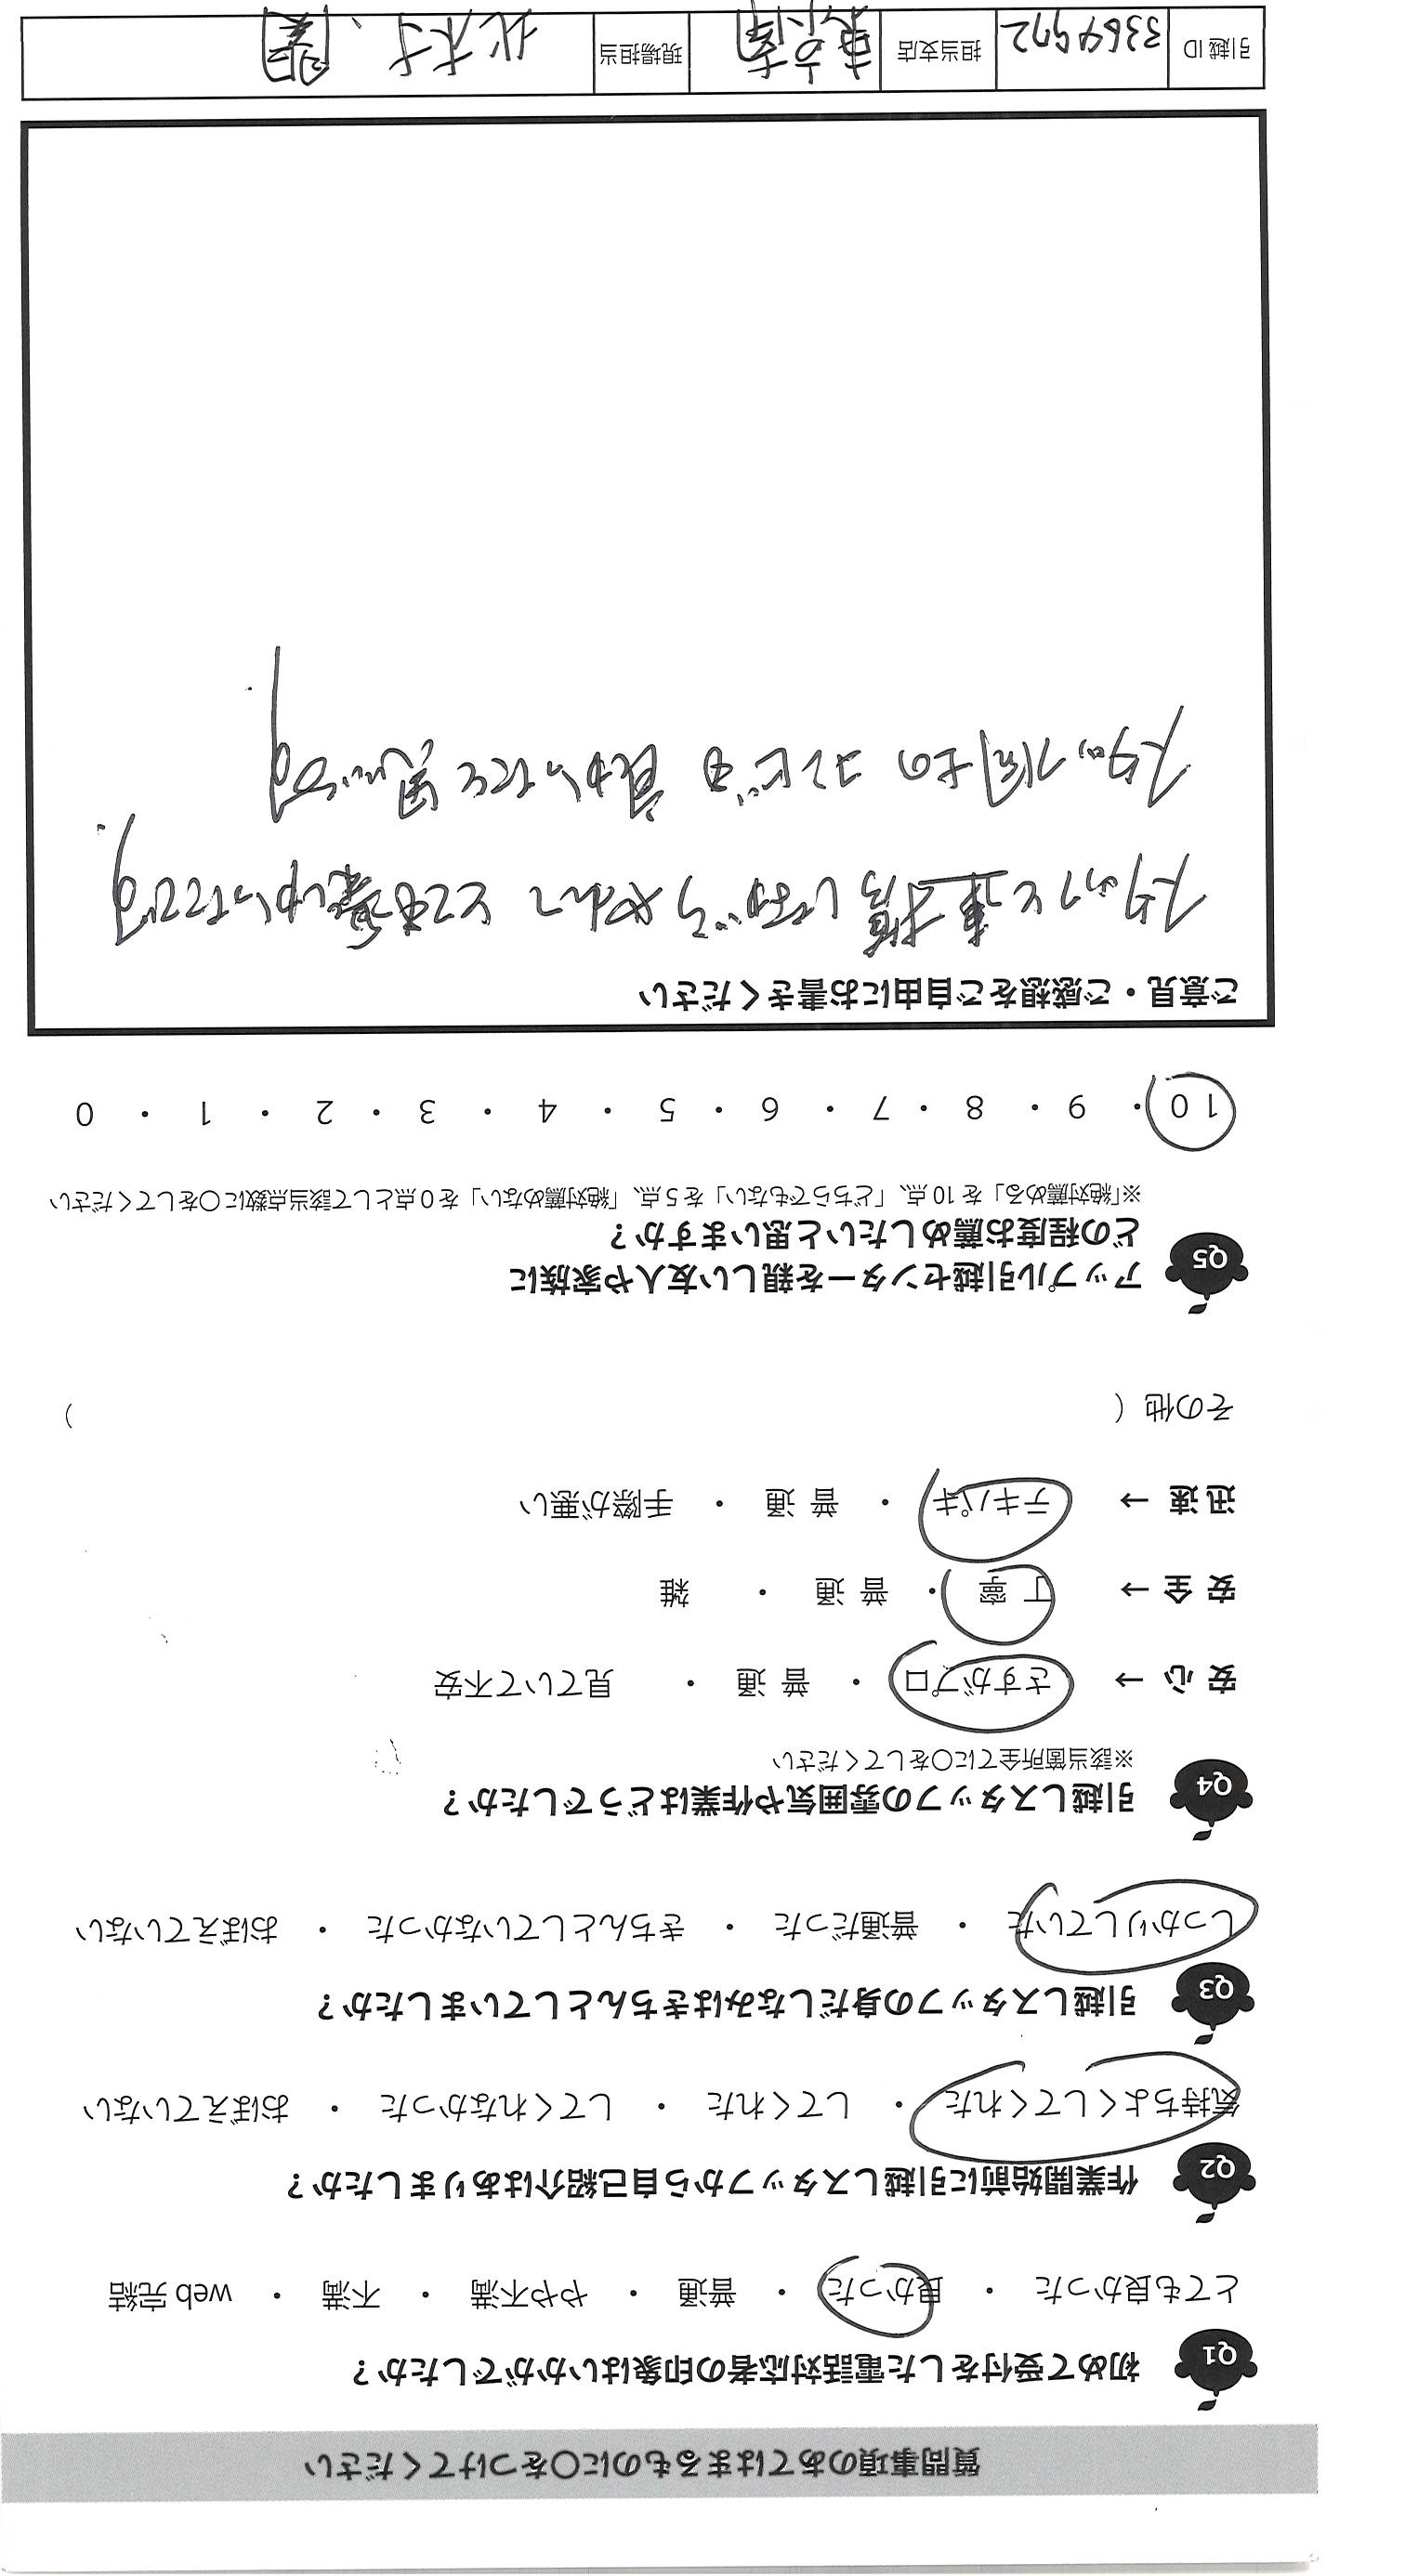 質問事項のあてはまるものに〇をつけてください
Q1 初めて受付をした電話対応者の印象はいかがでしたか？
とても良かった ・ 良かった ・ 普通 ・ やや不満 ・ 不満 ・ web 完結
Q2 作業開始前に引越しスタッフから自己紹介はありましたか？
気持ちよくしてくれた ・ してくれた ・ してくれなかった ・ おぼえていない
Q3 引越しスタッフの身だしなみはきちんとしていましたか？
しっかりしていた ・ 普通だった ・ きちんとしていなかった ・ おぼえていない
Q4 引越しスタッフの雰囲気や作業はどうでしたか？
※該当箇所全てに〇をしてください
安 心 → さすがプロ ・ 普 通 ・ 見ていて不安
安 全 → 丁 寧 ・ 普 通 ・ 雑
迅 速 → テキパキ ・ 普 通 ・ 手際が悪い
その他（ ）
Q5 アップル引越センターを親しい友人や家族に
どの程度お薦めしたいと思いますか？
※「絶対薦める」を 10 点、「どちらでもない」を 5 点、「絶対薦めない」を 0 点として該当点数に〇をしてください
10 ・ 9 ・ 8 ・ 7 ・ 6 ・ 5 ・ 4 ・ 3 ・ 2 ・ 1 ・ 0
ご意見・ご感想をご自由にお書きください
スタッフと しながら とても かったです。
スタッフ同士の コンビも 良かったと思います。
引越 ID 3364972 担当支店 現場担当 北村、関